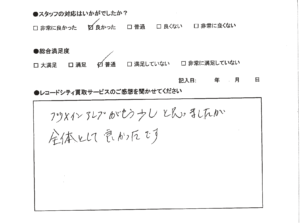 ●スタッフの対応はいかがでしたか?
□非常に良かった ☑良かった □普通 □良くない □非常に良くない
●総合満足度
□大満足 □満足 ☑普通 □満足していない □非常に満足していない
記入日: 年 月 日
●レコードシティ買取サービスのご感想を聞かせてください
プリメインアンプがもう少しと思いましたが
全体として良かったです